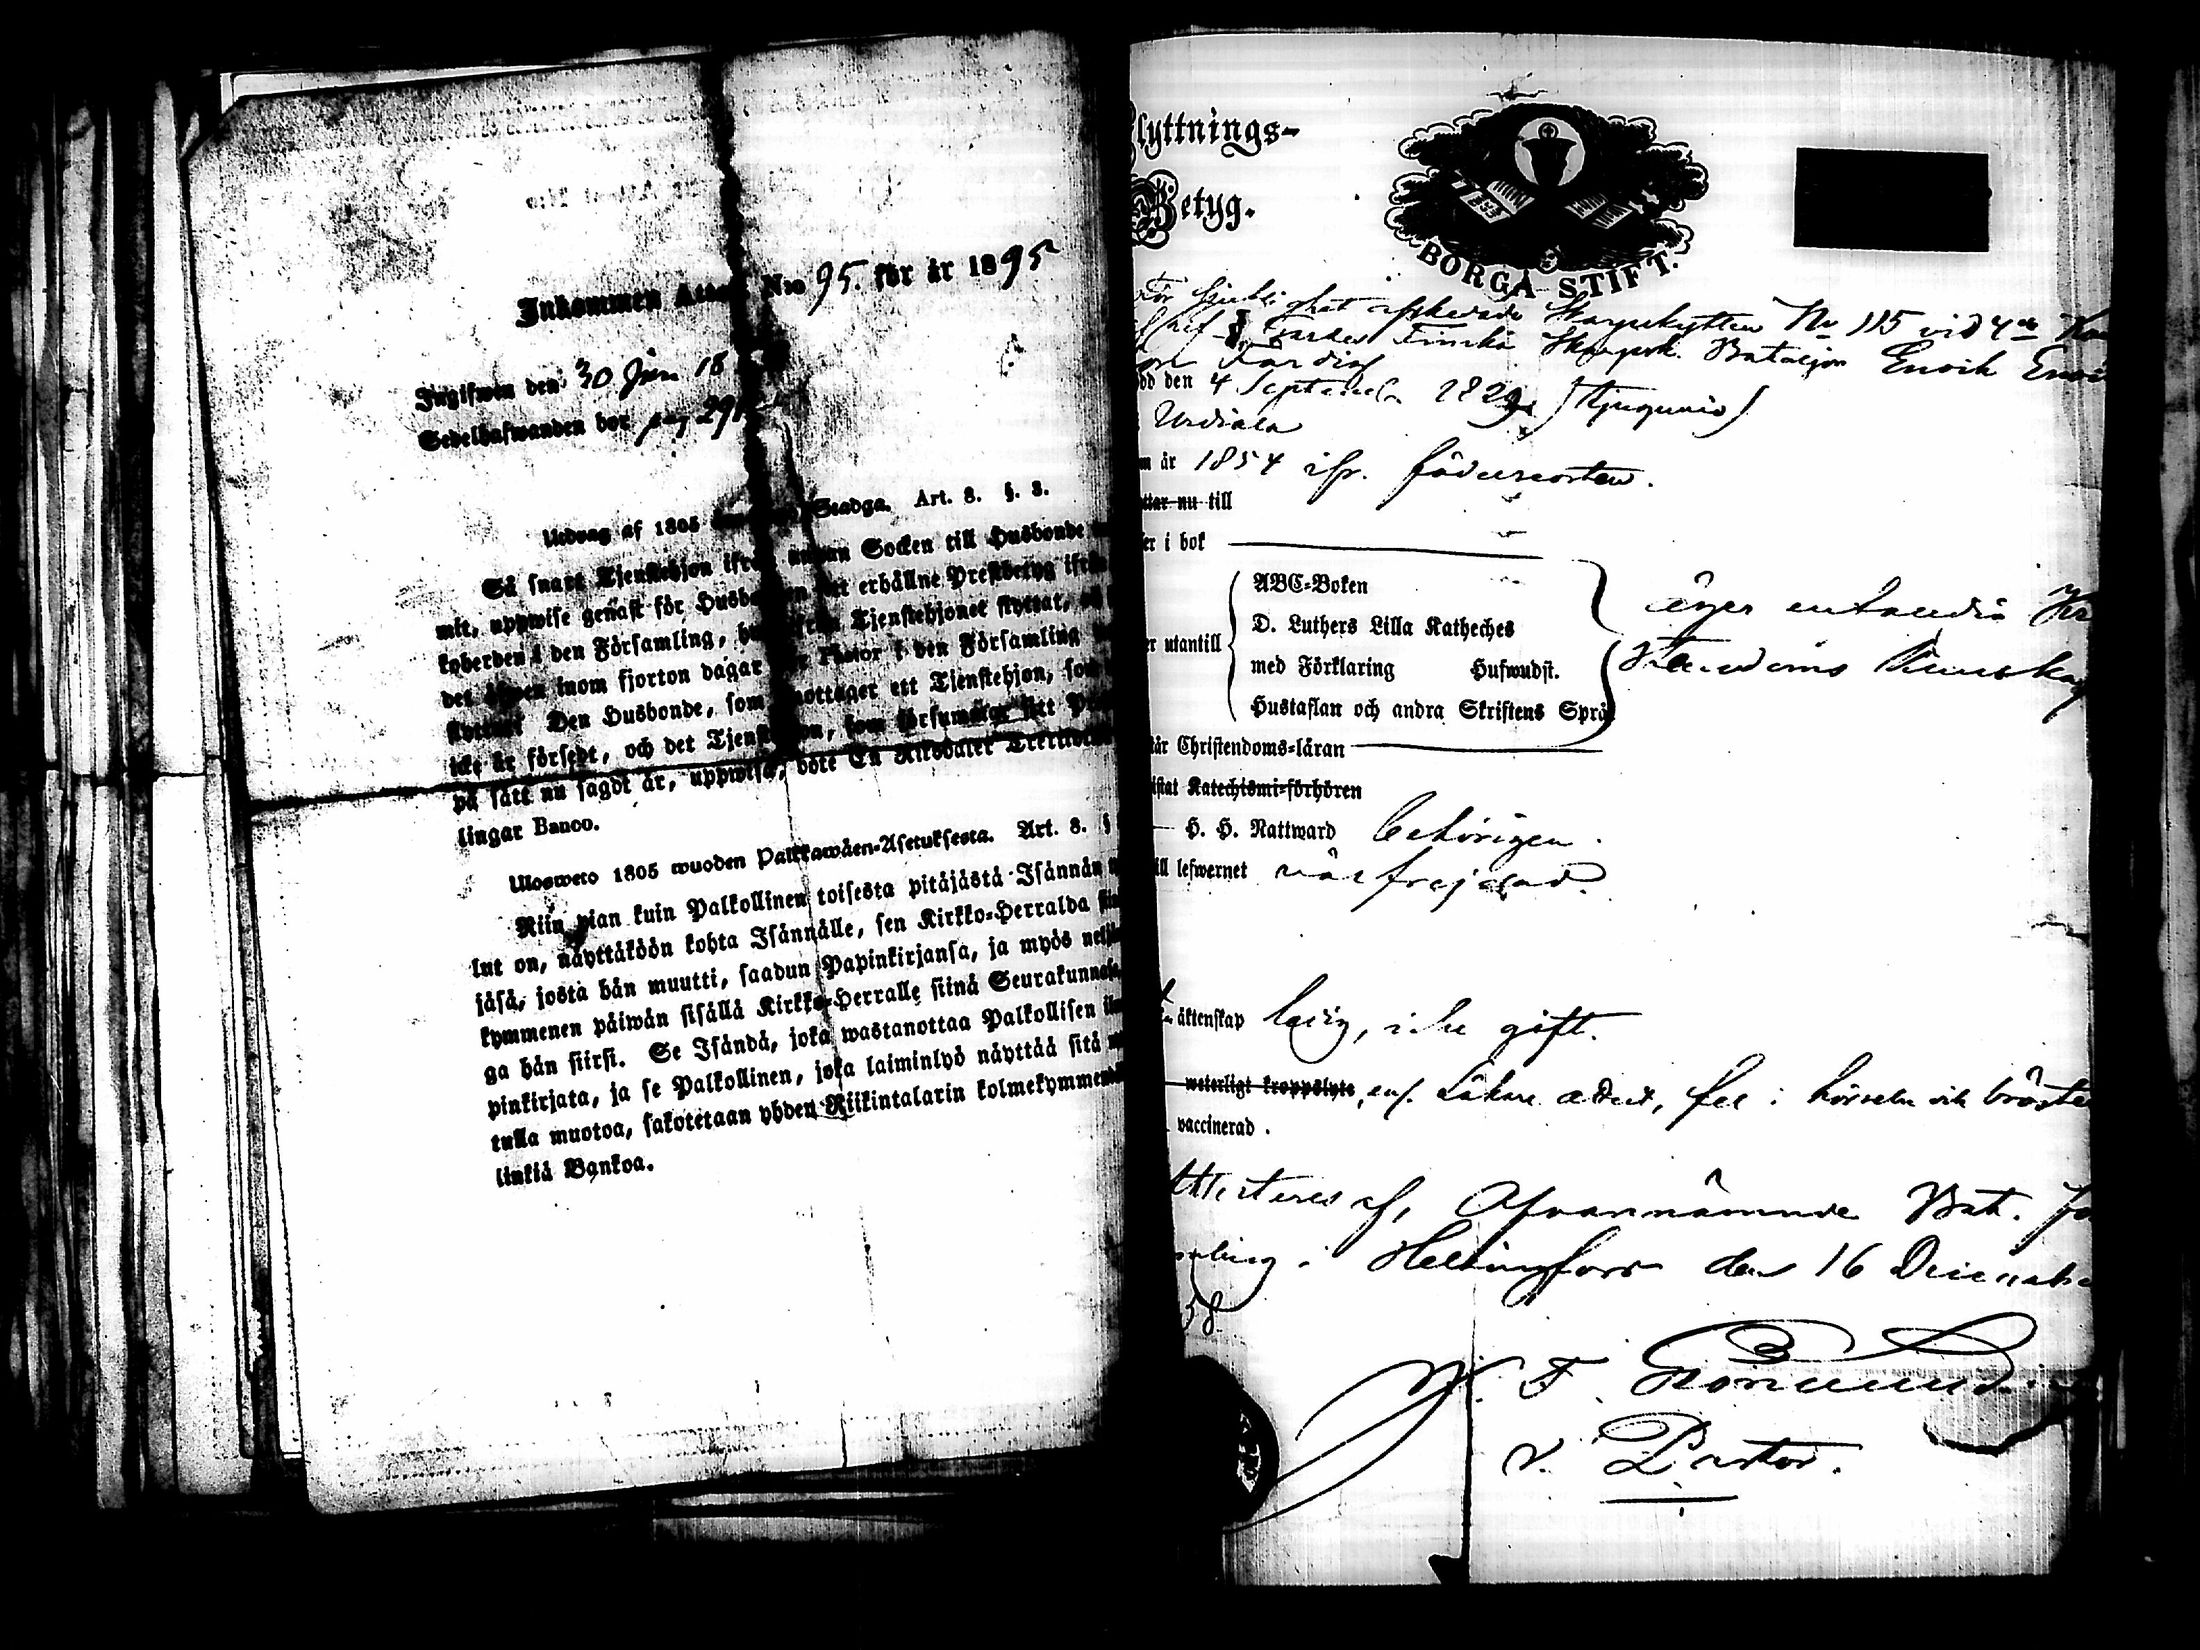 Inkommen Attest No 95. för år 1895
Ingifwen den 30 Jun 18
Sedelhafwanden bor pag 291
Utdrag af 1805 Stadga. Art. 8. §. 3.
Så snart Tjenstehjon ifrå annan Socken till Husbonde
mit, uppwise genast för Husbo en det erhållne Prestbetyg ifrån
koherden i den Församling, hwarifrån Tjenstehjonet flyttat, och
det äfwen inom fjorton dagar för Pastor i den Församling
flyttat. Den Husbonde, som mottager ett Tjenstehjon, som
icke är försedt, och det Tjenstehjon, som försummar sitt Pre
på sätt nu sagdt är, uppwisa, böte En Riksdaler Trettio
lingar Banco.
Uloswето 1805 wuoden Palkkawäen-Asetuksesta. Art. 8. §
Niin pian kuin Palkollinen toisesta pitäjästä Isännän
lut on, näyttäköön kohta Isännälle, sen Kirkko-Herralda
jäsä, josta hän muutti, saadun Papinkirjansa, ja myös nel
kymmenen päiwän sisällä Kirkko-Herralle siinä Seurakunna
ga hän siirsi. Se Isändä, joka wastanottaa Palkollisen
pinkirjata, ja se Palkollinen, joka laiminlyö näyttää sitä
tulla muotoa, sakotetaan yhden Riikintalarin kolmekymmen
linkiä Bankoa.
lyttnings-
Betyg.
BORGÅ STIFT.
för sjuklighet afskedade Skarpskytten No 115 vid 4de Kom
Finska Skarpsk. Bataljon Enoik
Fardig
dd den 4 September 1829 (tjugunio)
Urdiala
m år 1854 ifr. födelseorten.
ttar nu till
er i bok
er utantill
ABC-Boken
D. Luthers Lilla Katheches
med Förklaring Hufwudst.
Hustaflan och andra Skriftens Språk
äger enhanda
Kunskap
står Christendoms-läran
istat Katechismi-förhören
H. H. Nattward behörigen.
ill lefwernet wälfrejdad.
äktenskap ledig, icke gift.
weterligt kroppslyte, enl. Läkare attest, fel i hörseln och bröstet
vaccinerad.
Attesteras af, Ofvannämnde Bat. för
samling i Helsingfors den 16 December
58.
F. Grönlund
v. Pastor.